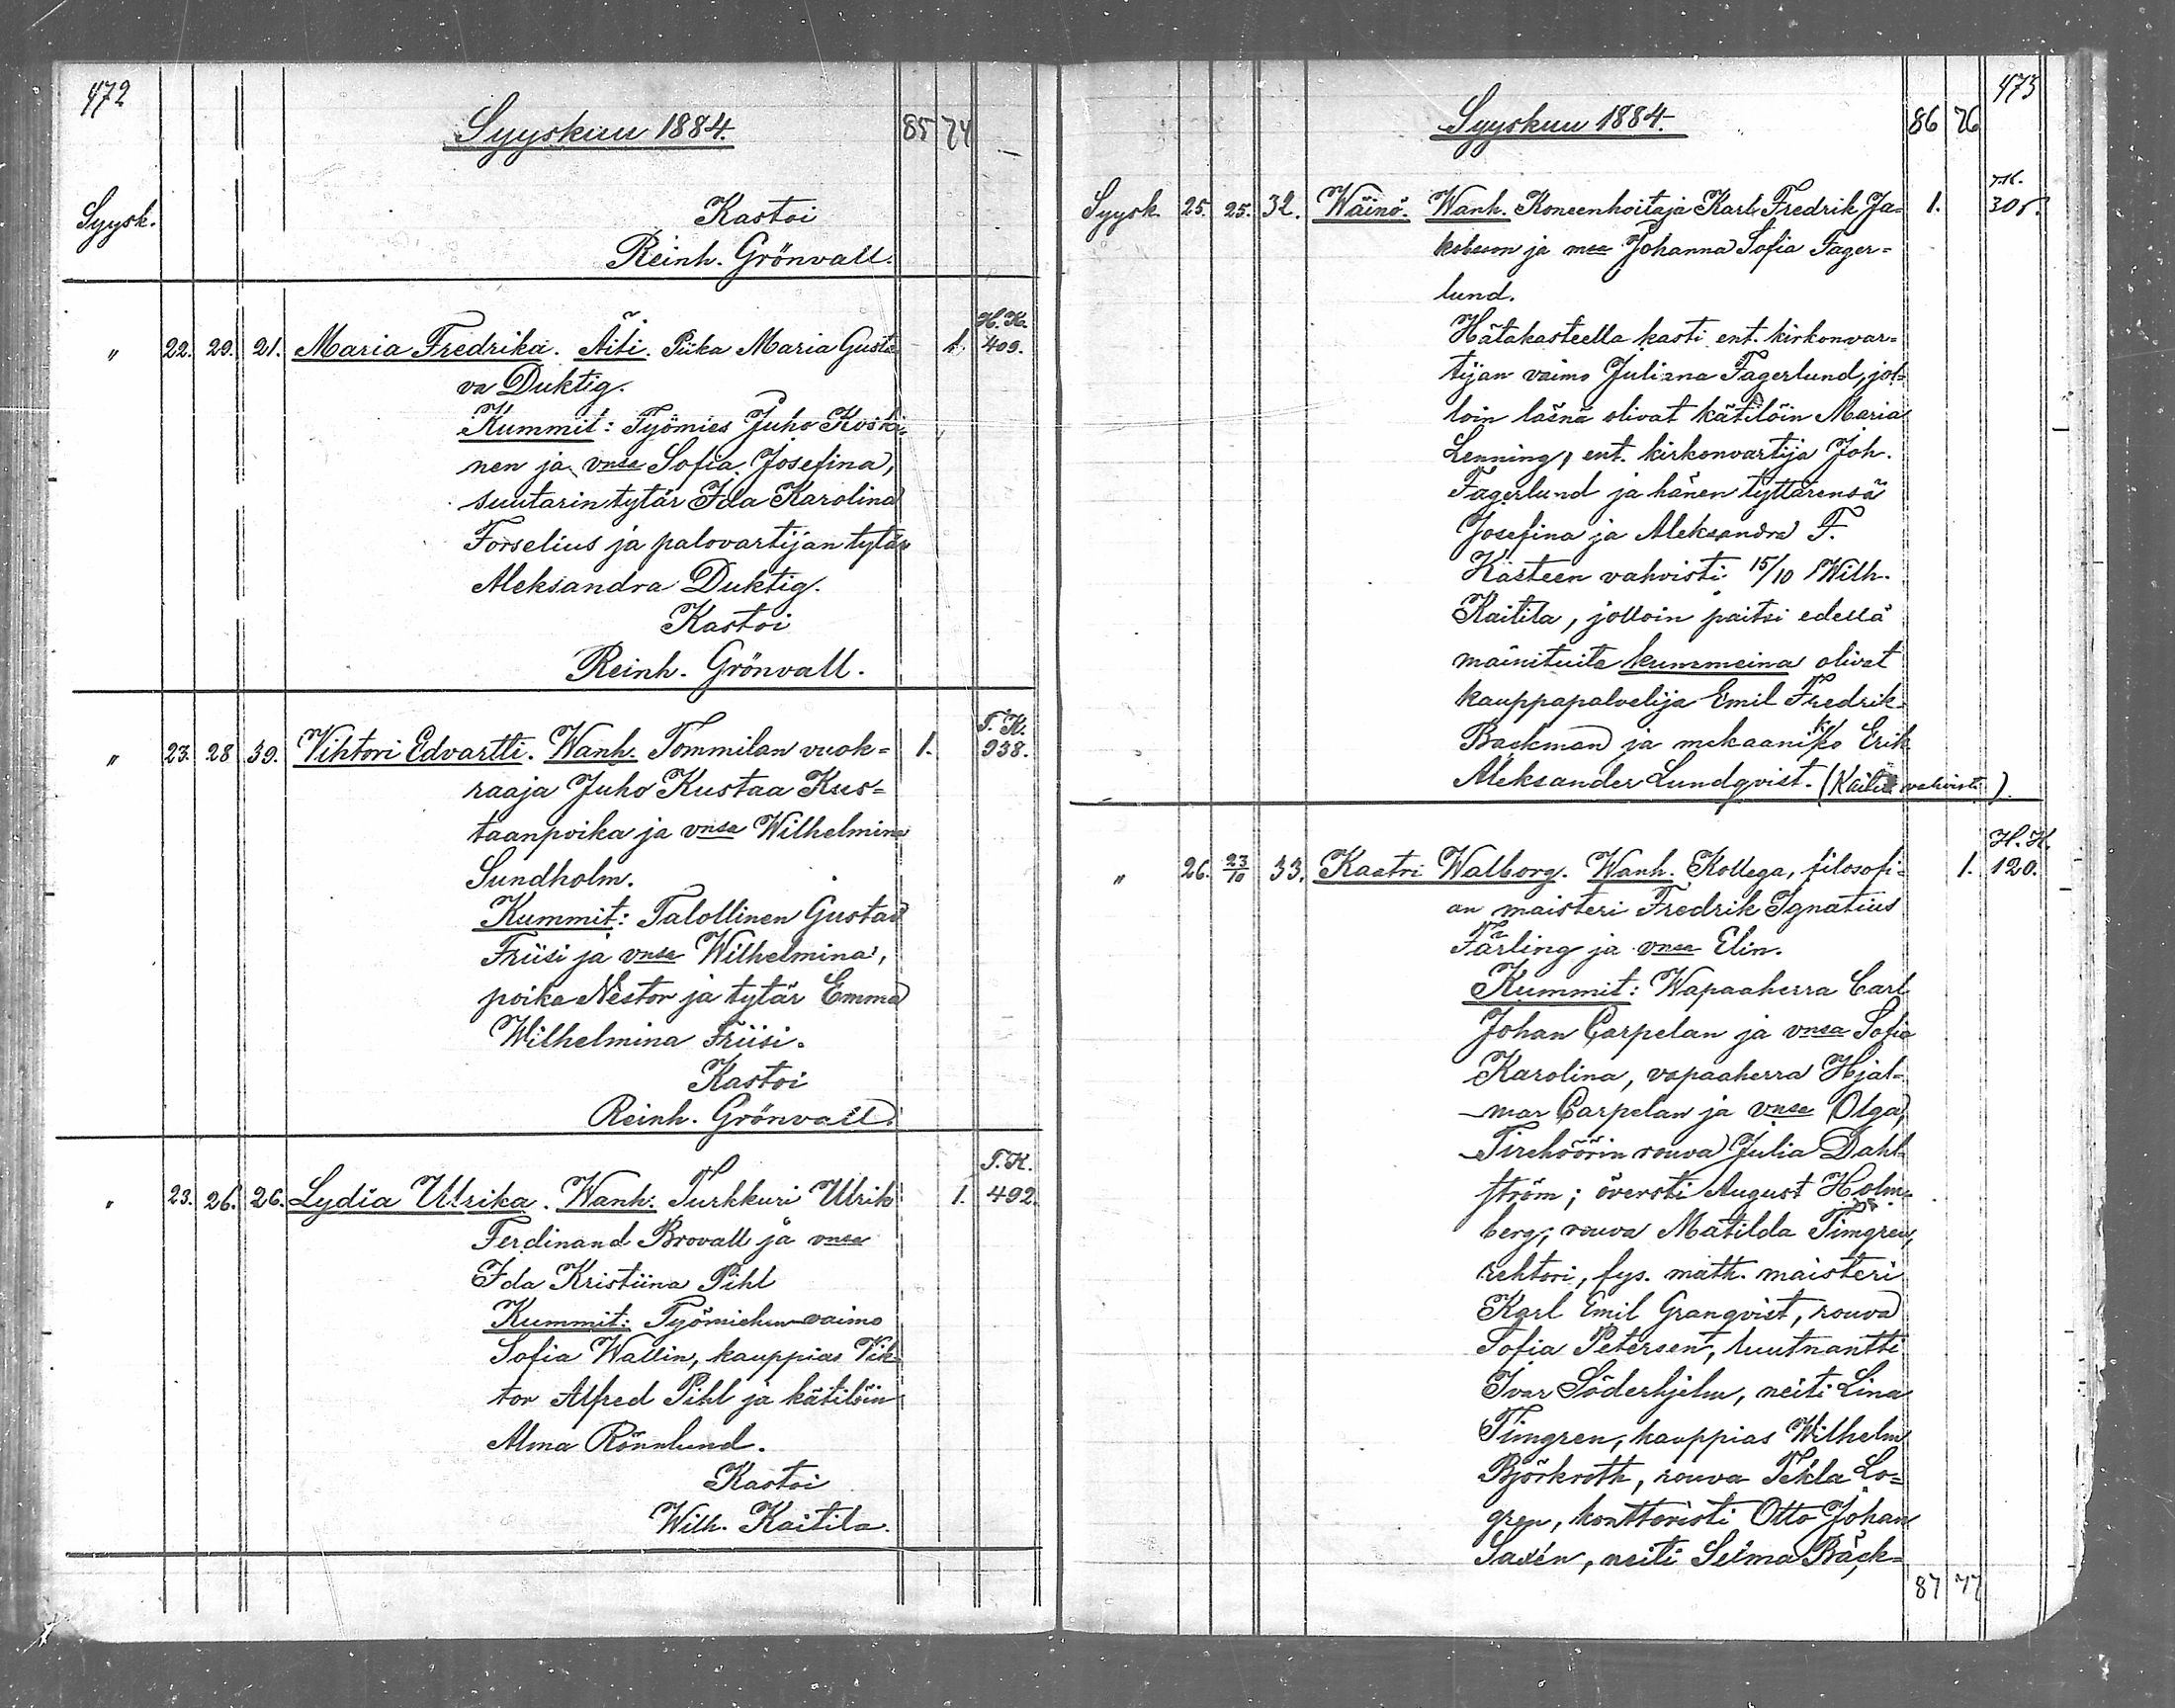 472
Syyskuu 1884.
85 74
Syysk.
Kastoi
Reinh. Grönvall.
H. K.
" 22. 29. 21. Maria Fredrika. Äiti. Piika Maria Gusta 1. 409.
va Duktig.
Kummit: Työmies Juho Koski-
nen ja vnsa Sofia Josefina,
suutarin tytär Ida Karolina
Forselius ja palovartijan tytär
Aleksandra Duktig.
Kastoi
Reinh. Grönvall.
T. K.
" 23. 28 39. Vihtori Edvartti. Wanh. Tommilan vuok= 1. 938.
raaja Juho Kustaa Kus=
taanpoika ja vnsa Wilhelmina
Sundholm.
Kummit: Talollinen Gustav
Friisi ja vnsa Wilhelmina,
poika Nestor ja tytär Emma
Wilhelmina Friisi.
Kastoi
Reinh. Grönvall.
T. K.
" 23. 26. 26. Lydia Ulrika. Wanh: Turkkuri Ulrik 1. 492.
Ferdinand Brovall ja vnsa
Ida Kristiina Pihl
Kummit: Työmiehen vaimo
Sofia Wallin, kauppias Vik-
tor Alfred Pihl ja kätilöin
Alma Rönnlund.
Kastoi
Wilh. Kaitila.
473
Syyskuu 1884.
86 76
T.K.
Syysk. 25. 25. 32. Wäinö. Wanh. Koneenhoitaja Karl Fredrik Ja= 1. 305.
kobsson ja vnsa Johanna Sofia Fager=
lund.
Hätäkasteella kasti ent. kirkonvar=
tijan vaimo Juliana Fagerlund, jol=
loin läsnä olivat kätilöin Maria
Lenning, ent. kirkonvartija Joh.
Fagerlund ja hänen tyttärensä
Josefina ja Aleksandra F.
Kasteen vahvisti 15/10 Wilh.
Kaitila, jolloin paitsi edellä
mainituita kummeina olivat
kauppapalvelija Emil Fredrik
Backman ja mekaanikko Erik
Aleksander Lundqvist. (Kaitila vahvisti)
H. K.
" 26. 23/10 33. Kaatri Walborg. Wanh. Kollega, filosofi= 1. 120.
an maisteri Fredrik Ignatius
Färling ja vnsa Elin.
Kummit: Wapaaherra Carl
Johan Carpelan ja vnsa Sofia
Karolina, vapaaherra Hjal-
mar Carpelan ja vnsa Olga,
Tirehöörin rouva Julia Dahl-
ström; översti August Holm=
berg; rouva Matilda Timgren,
rehtori, fys. math. maisteri
Karl Emil Granqvist, rouva
Sofia Petersen, luutnantti
Ivar Söderhjelm, neiti Lina
Timgren, kauppias Wilhelm
Björkroth, rouva Tekla Lo=
gren, konttoristi Otto Johan
Saxén, neiti Selma Bäck=
87 77